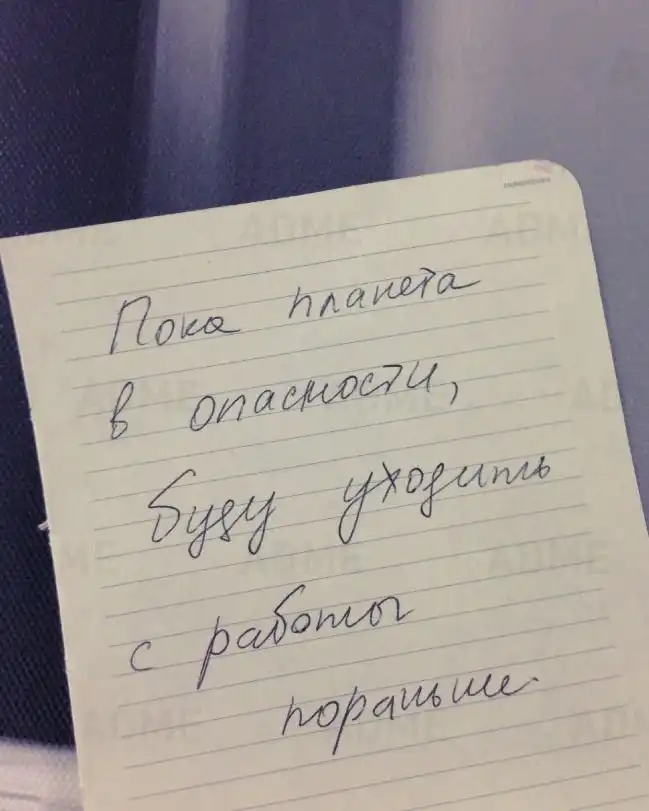 Пока планета
в опасности,
буду уходить
с работы
пораньше.
ADME